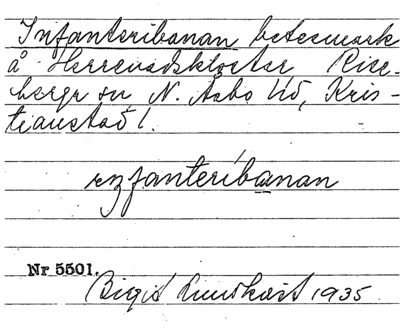 Infanteribanan betesmark
å Herrevadskloster Rise-
berga sn, N. Åsbo hd, Kris-
tianstad l.
infanteribanan
Nr 5501.
1935